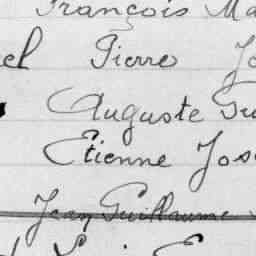 François Ma
el Pierre Jo
Auguste Gu
Etienne Jos
Jean Guillaume